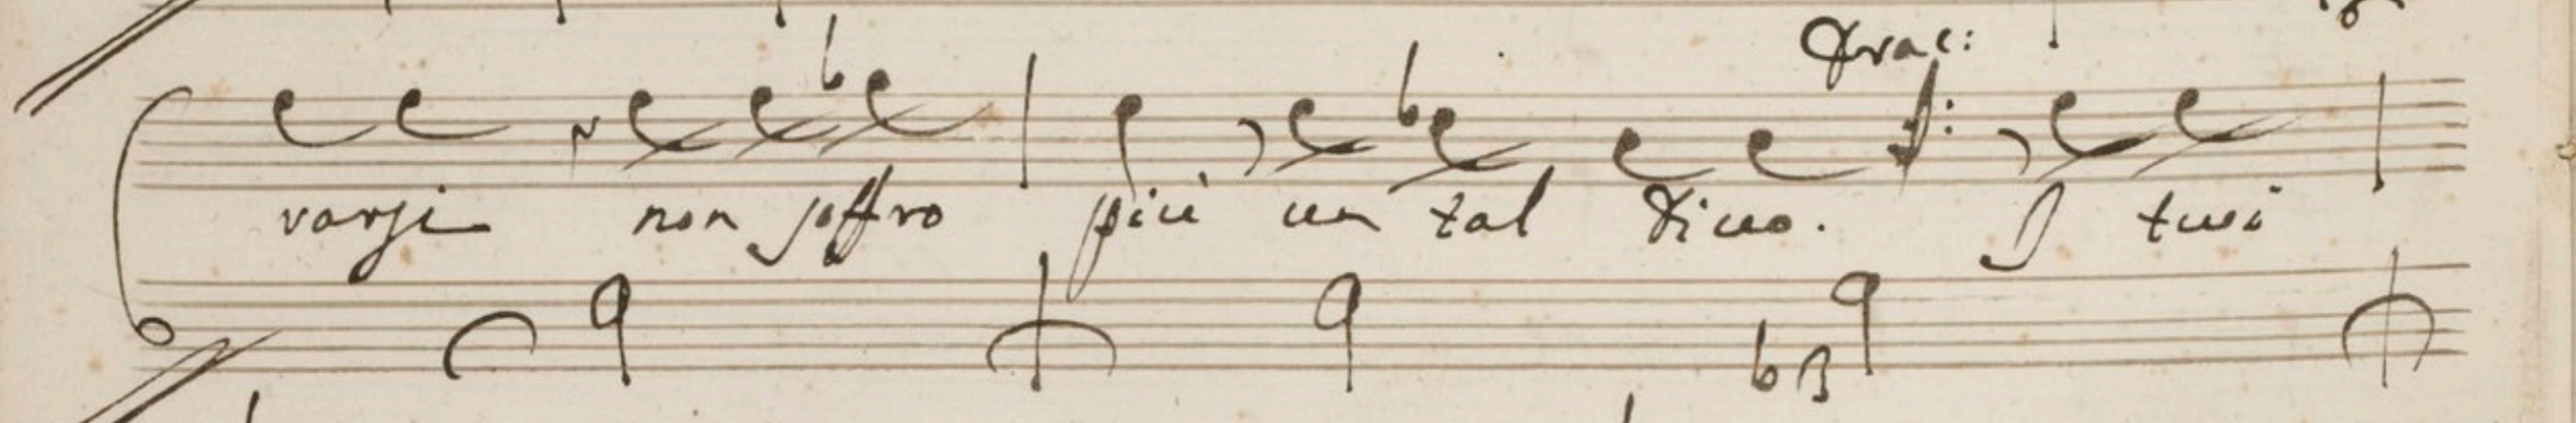 Drac:
varsi non soffro più un tal Divo. I tuoi